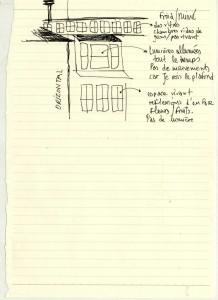 Froid / Minéral
des vitres
chambres vides de
gens / pas vivant
Lumières allumées
tout le temps
Pas de mouvements
car je vois le plafond
espace vivant
réflexions d'un par
fleurs / fruits.
Pas de lumière
ORIZONTAL